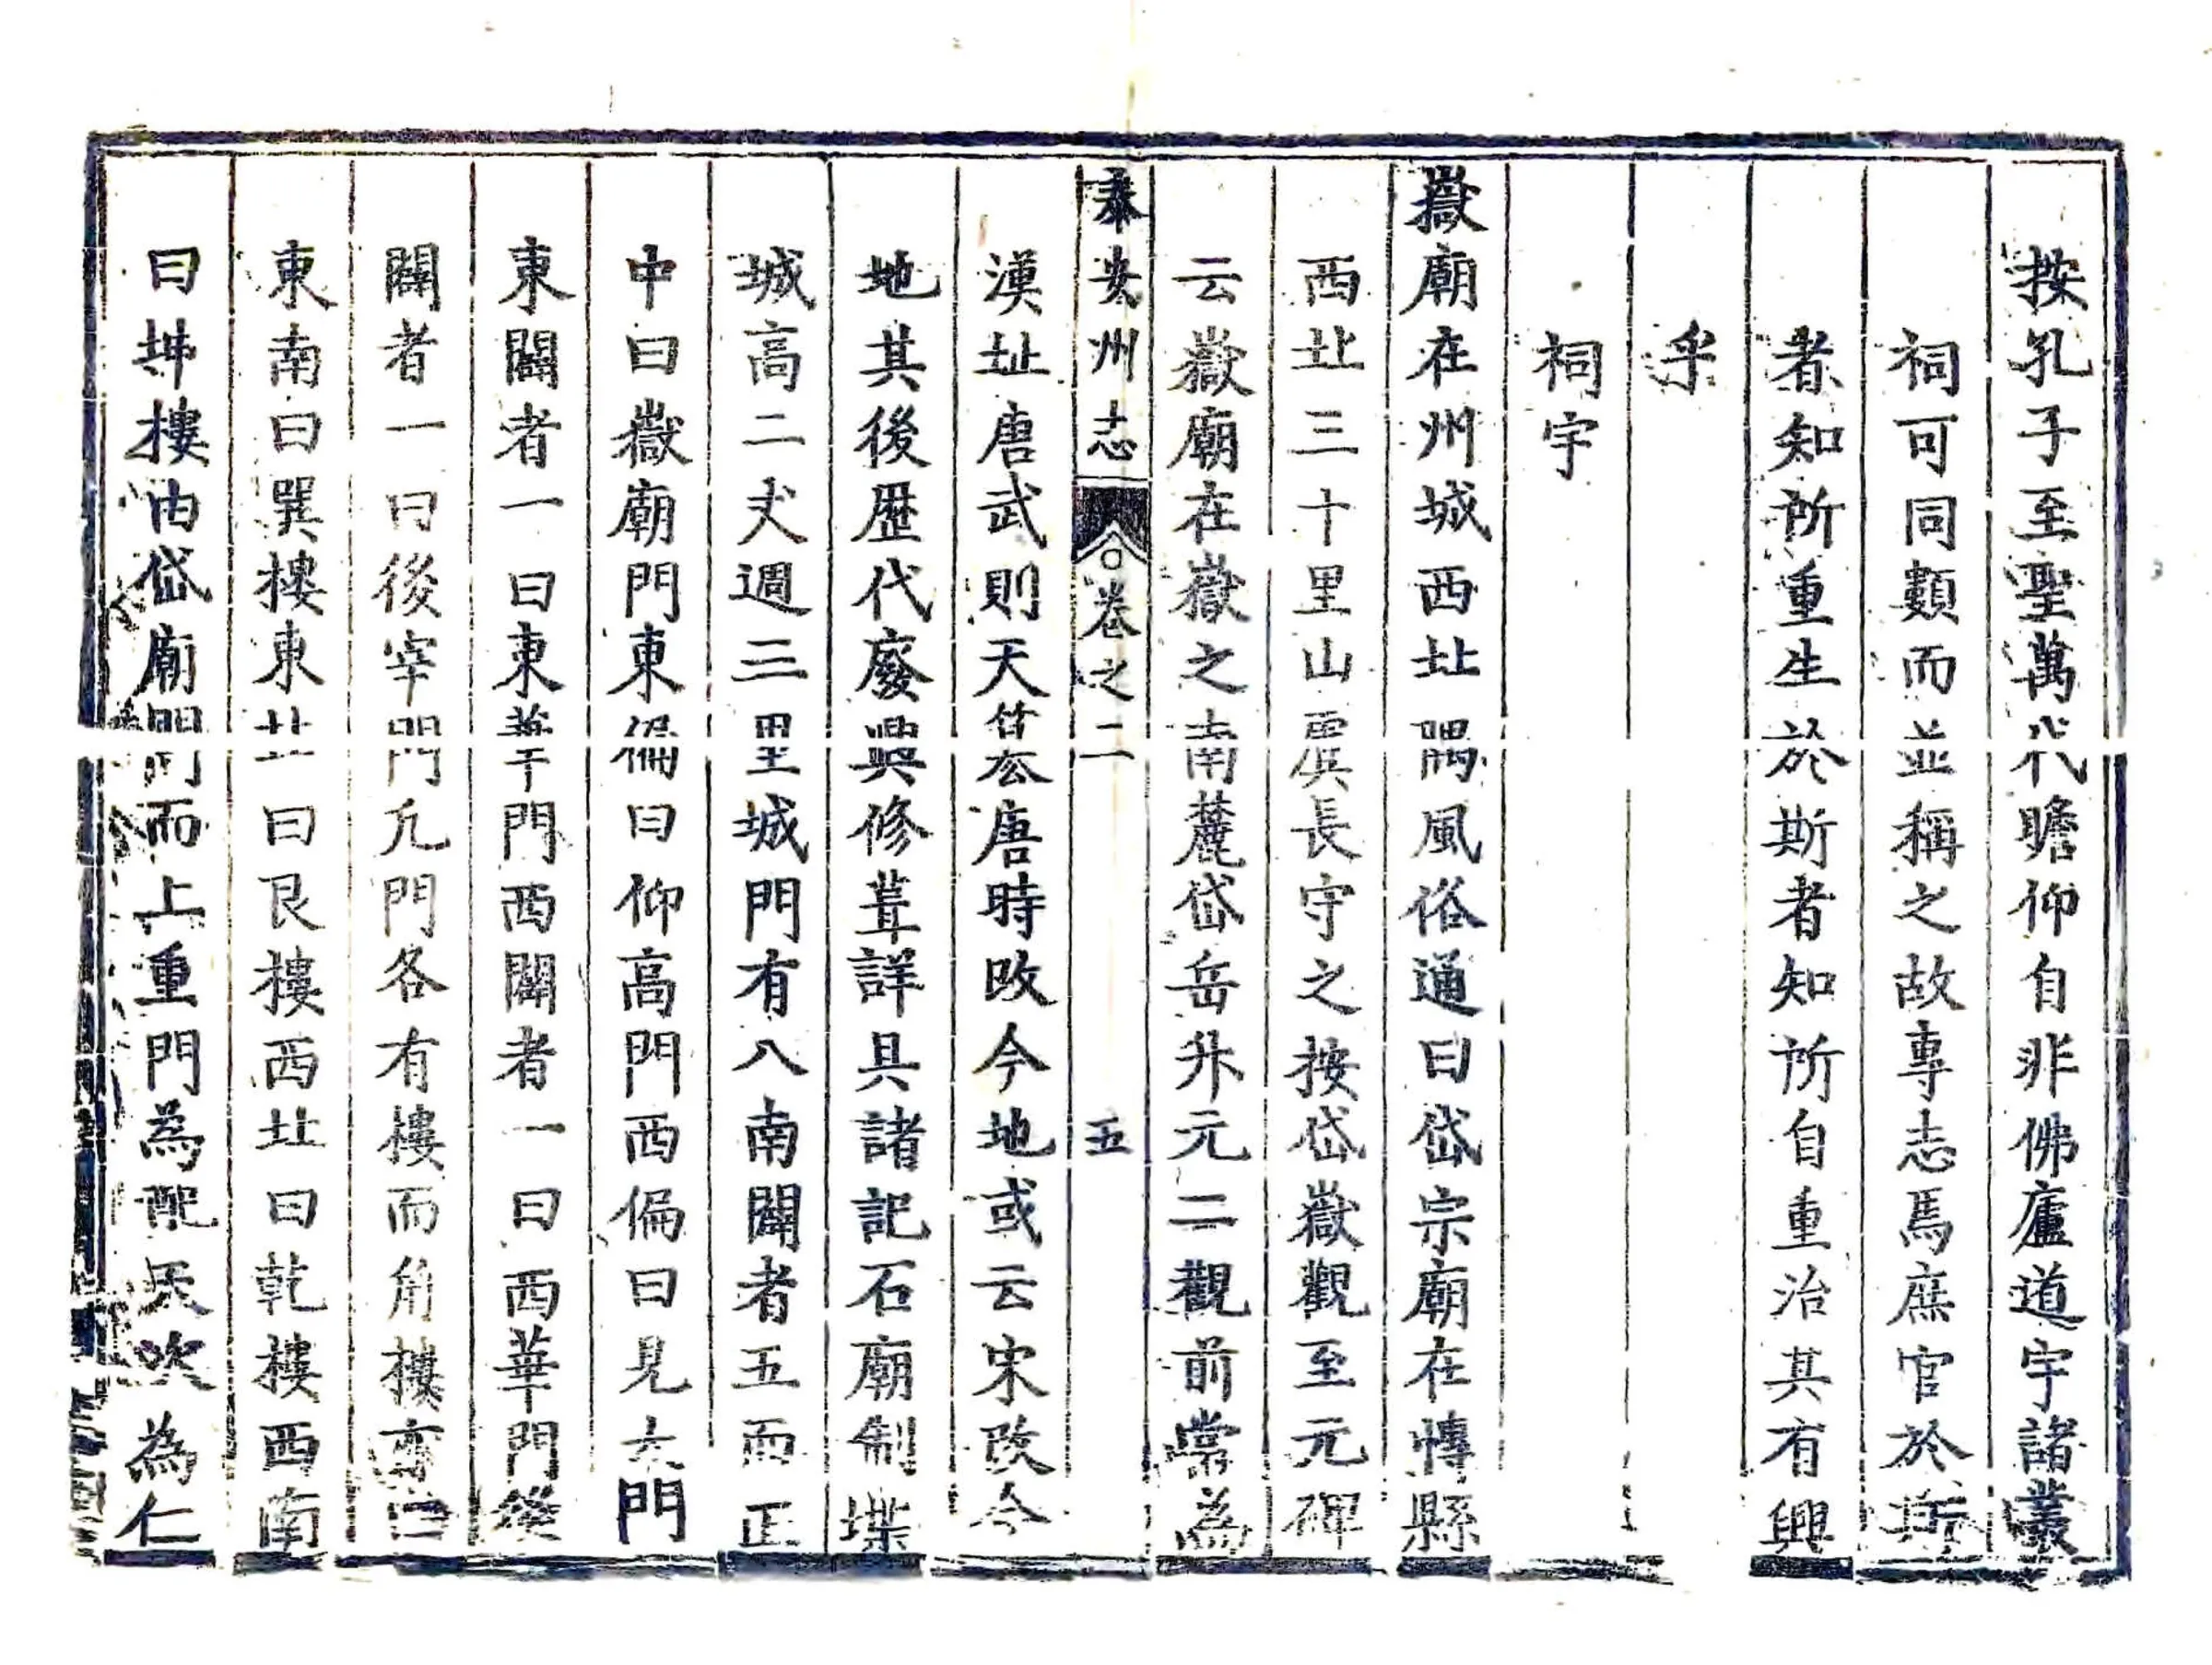 按孔子至聖萬代瞻仰自非佛廬道宇諸叢
祠可同類而並稱之故專志焉庶官於斯
者知所重生於斯者知所自重治其有興
乎
祠宇
嶽廟在州城西北隅風俗通曰岱宗廟在博縣
西北三十里山虞長守之按岱嶽觀至元碑
云嶽廟在嶽之南麓岱岳升元二觀前嘗為
泰安州志 卷之二 五
漢址唐武則天
唐時改今地或云宋改今
地其後歷代廢興修葺詳具諸記石廟制堞
城高二丈週三里城門有八南闢者五而正
中曰嶽廟門東偏曰仰高門西偏曰見大門
東闢者一曰東華門西闢者一曰西華門後
闢者一曰後宰門凡門各有樓而角樓亦四
東南曰巽樓東北曰艮樓西北曰乾樓西南
曰坤樓由岱廟門而上重門為配天次為仁